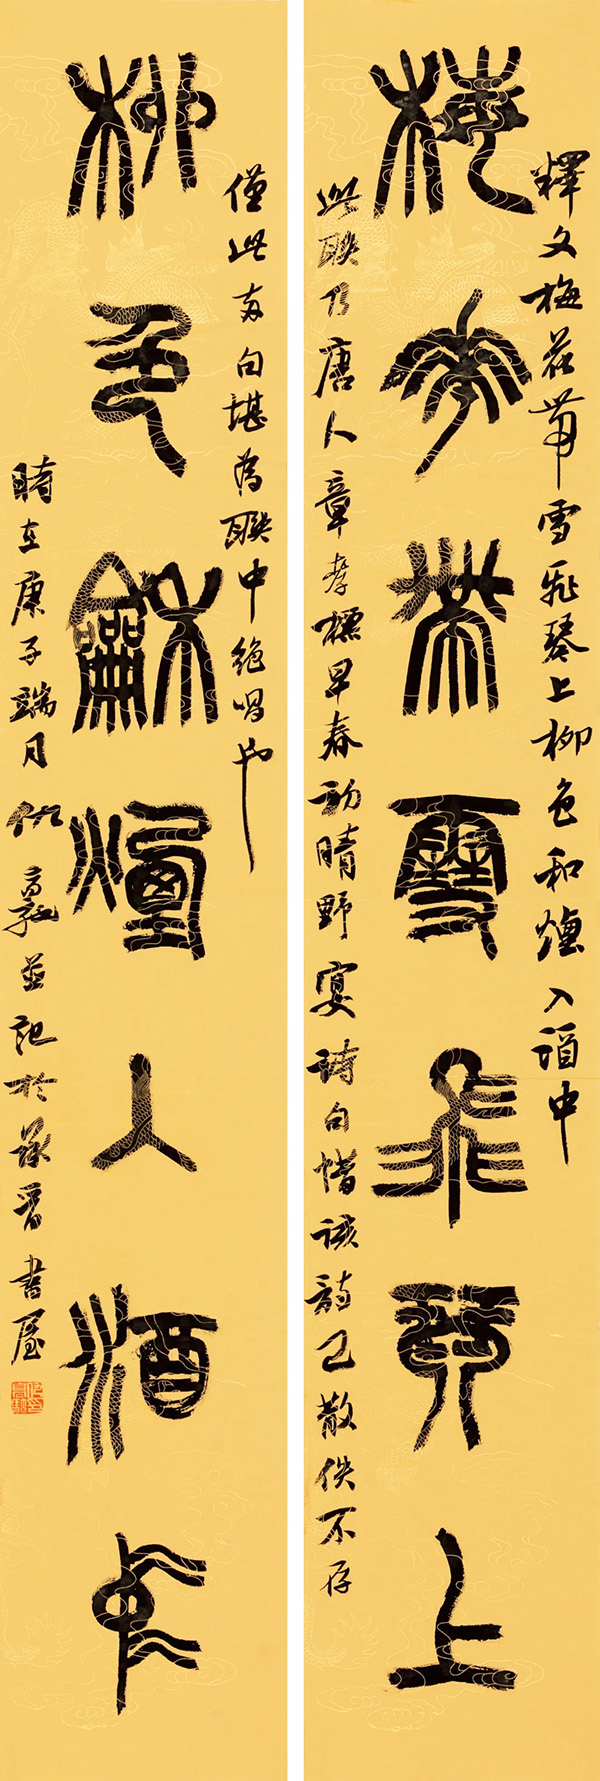 釋文梅花帶雪飛琴上柳色和煙入酒中
梅花帶雪飛琴上
此聯乃唐人章孝標早春初晴野宴詩句惜該詩已散佚不存
僅此兩句堪為聯中絕唱也
柳色龢煙入酒中
時在庚子端月仇高馳並記於承晉書屋